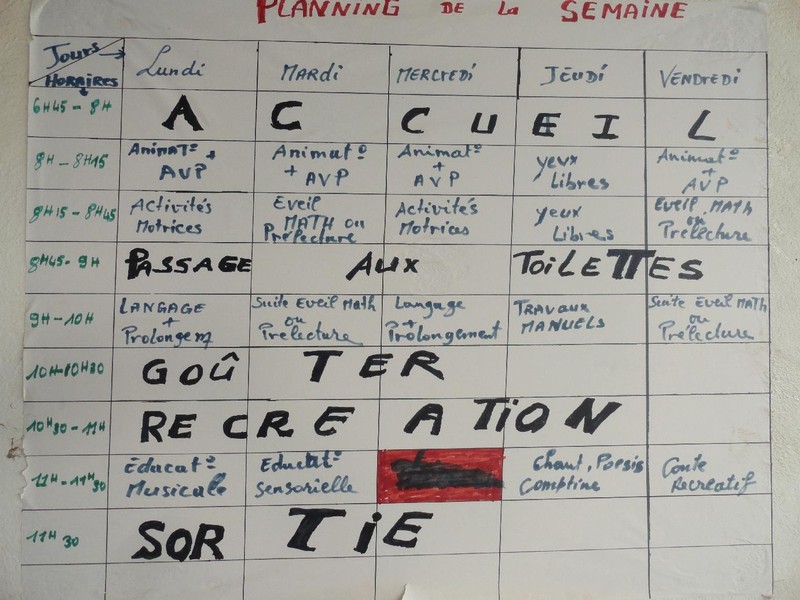 PLANNING DE La SEMAINE
Jours
HORAIRES
Lundi
MARDI
MERCREDI
JEUDI
VENDREDI
6H45 - 8H
ACCUEIL
8H - 8H15
Animat° +
AVP
Animat°
+ AVP
Animat°
+
AVP
yeux
Libres
Animat°
+
AVP
8H15 - 8H45
Activités
Motrices
Eveil
MATH ou
Prélecture
Activités
Motrices
yeux
Libres
Eveil MATH
ou
Prélecture
8H45 - 9H
PASSAGE AUX TOILETTES
9H - 10H
LANGAGE
+
Prolongem
Suite Eveil Math
ou
Prélecture
Langage
+
Prolongement
TRAVAUX
MANUELS
Suite Eveil MATH
ou
Prélecture
10H-10H30
GOÛTER
10H30 - 11H
RECREATION
11H - 11H30
Educat°
Musicale
Educat°
Sensorielle
Chant, Poesis
Comptine
Conte
Recreatif
11H30
SORTIE